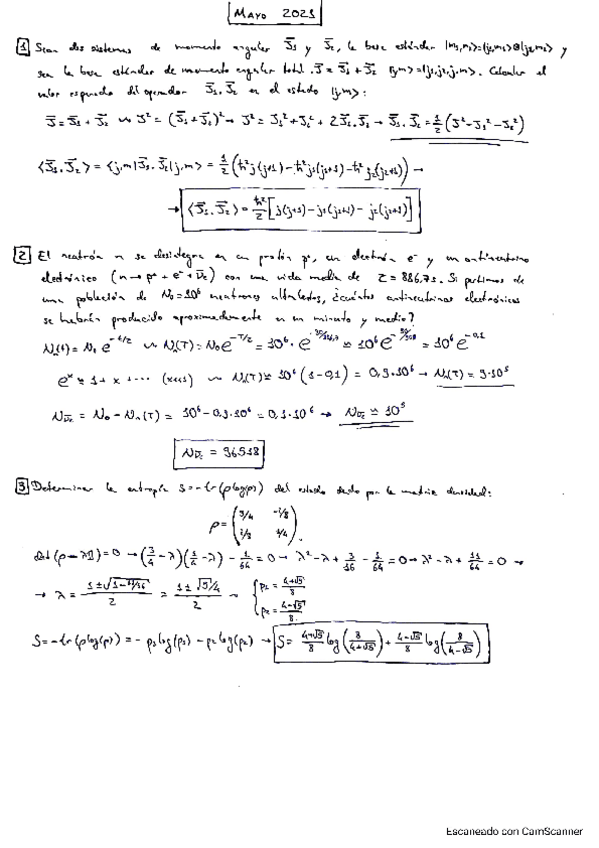 MAYO 2023
1 Sean dos sistemas de momento angular J⃗₁ y J⃗₂, la base estándar |m₁,m₂>=|j₁,m₁>⊗|j₂,m₂> y
sea la base estándar de momento angular total J⃗=J⃗₁+J⃗₂ |j,m>=|j₁,j₂,j,m>. Calcular el
valor esperado del operador J⃗₁.J⃗₂ en el estado |j,m>:
J⃗=J⃗₁+J⃗₂ ⇝ J²=(J⃗₁+J⃗₂)² → J²=J₁²+J₂²+2J⃗₁.J⃗₂ → J⃗₁.J⃗₂=1/2(J²-J₁²-J₂²)
<J⃗₁.J⃗₂>=<j,m|J⃗₁.J⃗₂|j,m>=1/2(ħ²j(j+1)-ħ²j₁(j₁+1)-ħ²j₂(j₂+1)) →
→ <J⃗₁.J⃗₂>=ħ²/2[j(j+1)-j₁(j₁+1)-j₂(j₂+1)]
2 El neutrón n se desintegra en un protón p⁺, un electrón e⁻ y un antineutrino
electrónico (n→p⁺+e⁻+ν̄e) con una vida media de τ=886,7s. Si partimos de
una población de N₀=10⁶ neutrones ultrafríos, ¿cuántos antineutrinos electrónicos
se habrán producido aproximadamente en un minuto y medio?
Nₙ(t)=N₀e^(-t/τ) ⇝ Nₙ(T)=N₀e^(-T/τ)=10⁶·e^(-90/886,7)≃10⁶e^(-90/900)=10⁶e^(-0,1)
eˣ≃1+x+... (x<<1) ⇝ Nₙ(T)≃10⁶(1-0,1)=0,9·10⁶ → Nₙ(T)=9·10⁵
Nν̄e=N₀-Nₙ(T)=10⁶-0,9·10⁶=0,1·10⁶ → Nν̄e≃10⁵
Nν̄e=96518
3 Determinar la entropía S=-tr(ρlogρ) del estado dado por la matriz densidad:
ρ=(3/4 -i/8
i/8 1/4).
det(ρ-λ1)=0 → (3/4-λ)(1/4-λ)-1/64=0 → λ²-λ+3/16-1/64=0 → λ²-λ+11/64=0 →
→ λ=(1±√(1-11/16))/2=(1±√5/4)/2 → {p₁=(4+√5)/8
p₂=(4-√5)/8.
S=-tr(ρlog(ρ))=-p₁log(p₁)-p₂log(p₂) → S=(4+√5)/8 log(8/(4+√5))+(4-√5)/8 log(8/(4-√5))
Escaneado con CamScanner